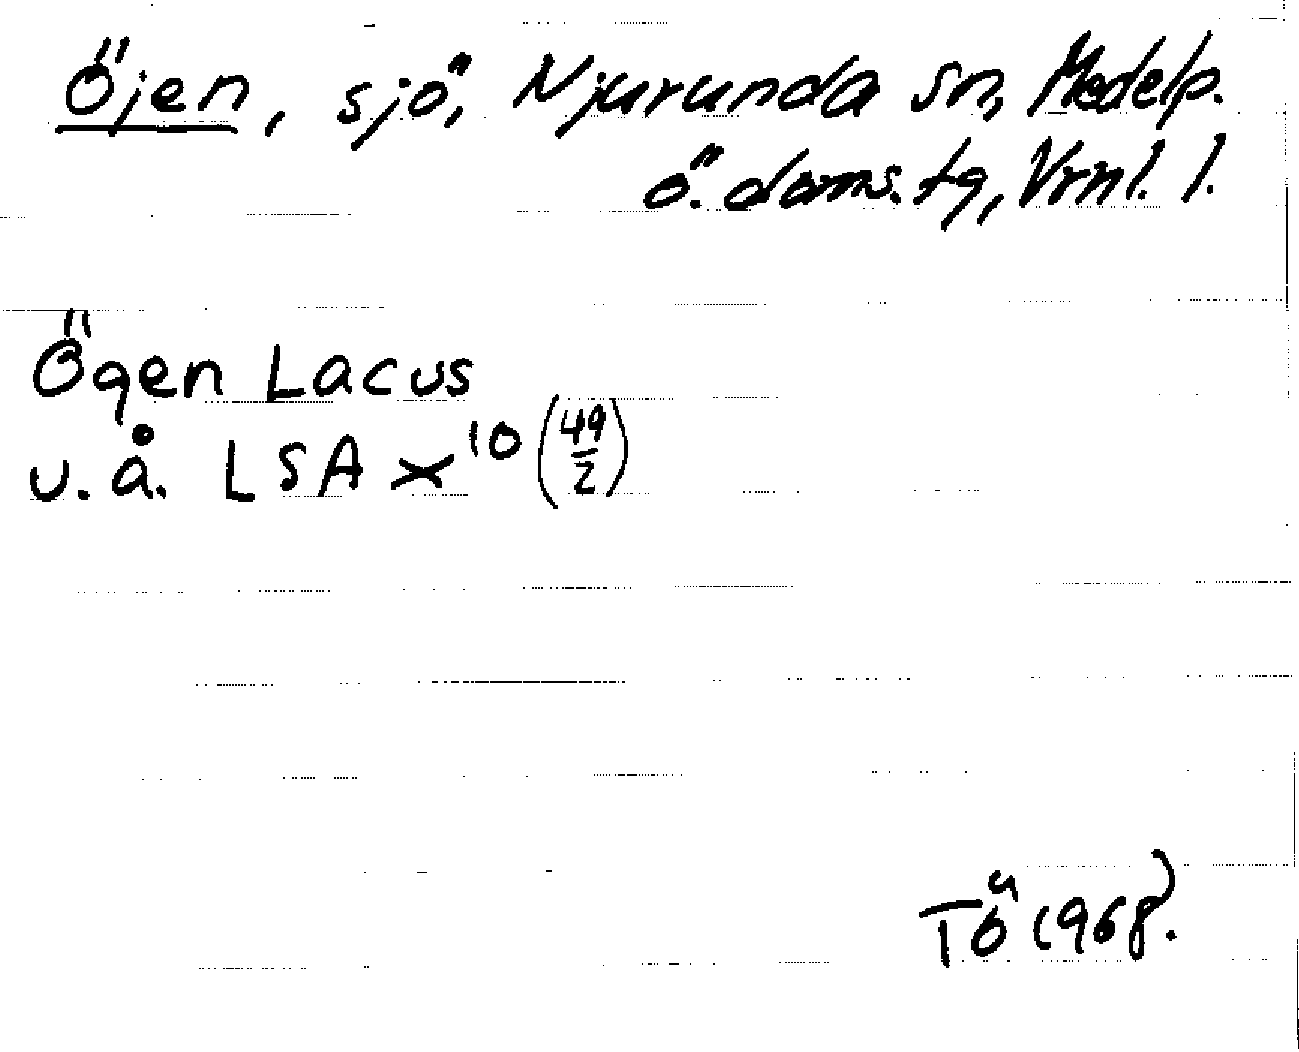 Öjen, sjö, Njurunda sn, Medelp.
ö. doms. tg, Vrnl. l.
Ögen Lacus
u.å. LSA x¹⁰ (49/2)
TÖ (1968).